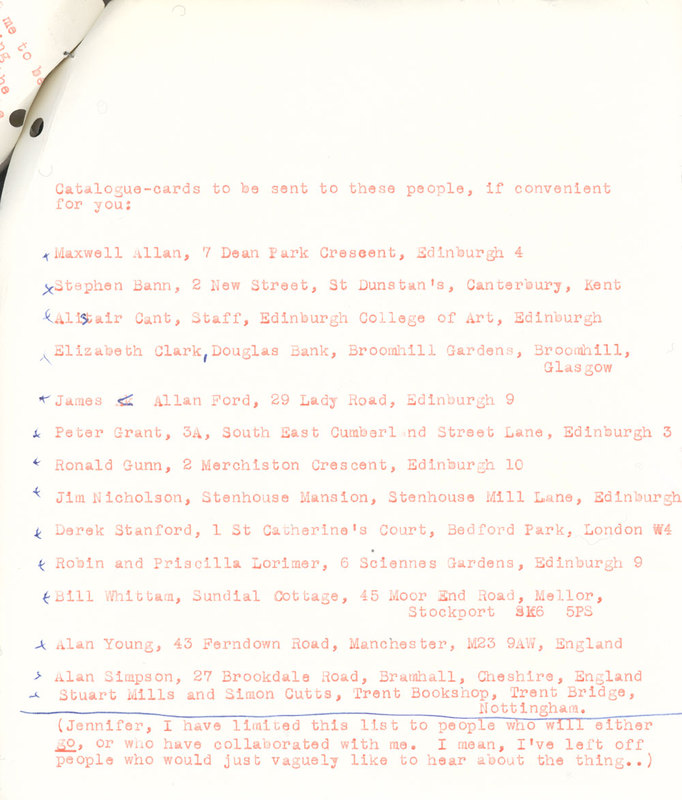 me to be
Catalogue-cards to be sent to these people, if convenient
for you:
Maxwell Allan, 7 Dean Park Crescent, Edinburgh 4
Stephen Bann, 2 New Street, St Dunstan's, Canterbury, Kent
Alistair Cant, Staff, Edinburgh College of Art, Edinburgh
Elizabeth Clark, Douglas Bank, Broomhill Gardens, Broomhill,
Glasgow
James Allan Ford, 29 Lady Road, Edinburgh 9
Peter Grant, 3A, South East Cumberland Street Lane, Edinburgh 3
Ronald Gunn, 2 Merchiston Crescent, Edinburgh 10
Jim Nicholson, Stenhouse Mansion, Stenhouse Mill Lane, Edinburgh
Derek Stanford, 1 St Catherine's Court, Bedford Park, London W4
Robin and Priscilla Lorimer, 6 Sciennes Gardens, Edinburgh 9
Bill Whittam, Sundial Cottage, 45 Moor End Road, Mellor,
Stockport SK6 5PS
Alan Young, 43 Ferndown Road, Manchester, M23 9AW, England
Alan Simpson, 27 Brookdale Road, Bramhall, Cheshire, England
Stuart Mills and Simon Cutts, Trent Bookshop, Trent Bridge,
Nottingham.
(Jennifer, I have limited this list to people who will either
go, or who have collaborated with me. I mean, I've left off
people who would just vaguely like to hear about the thing..)